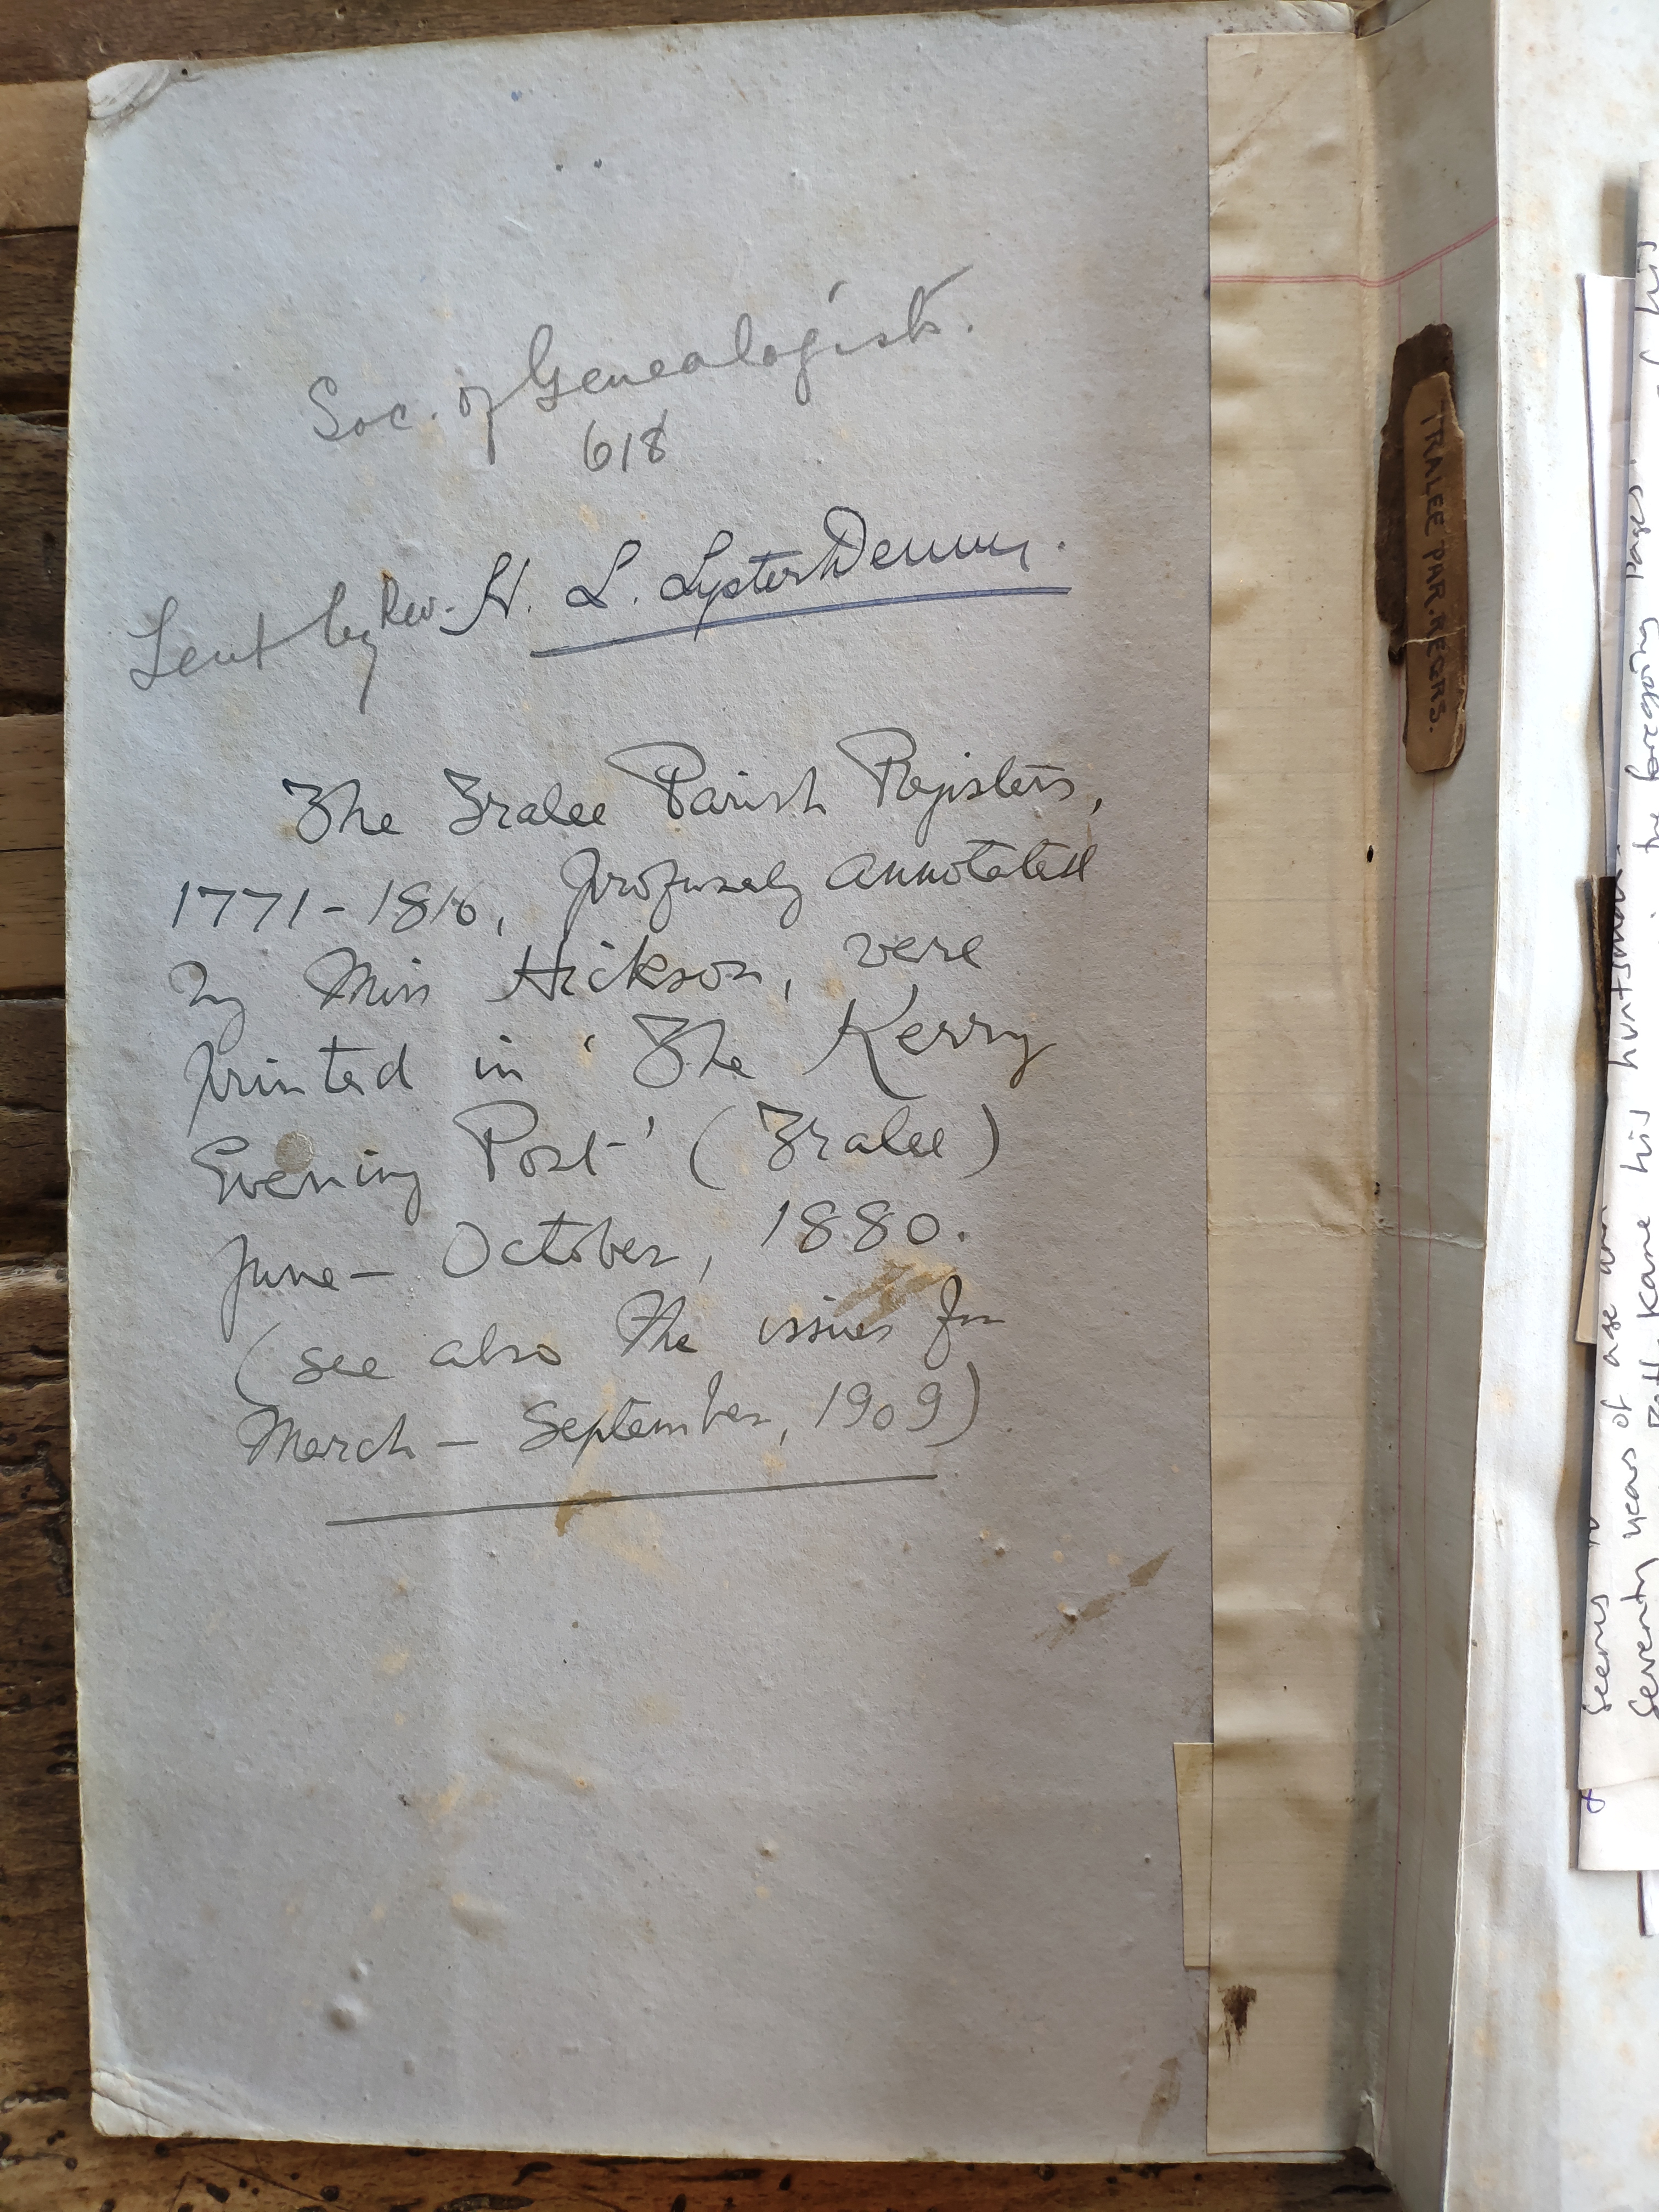 Soc. of Genealogists.
618
Lent by Rev. H. L. Lyster Denny.
The Tralee Parish Registers,
1771-1816, profusely annotated
by Miss Hickson, were
printed in 'The Kerry
Evening Post' (Tralee)
June - October, 1880.
(see also the issues for
March - September, 1909)
TRALEE PAR. REGRS.
the foregoing pages
his huntsman
seems
of age
seventy years
Kane his